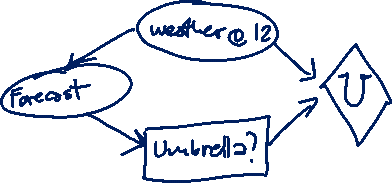 weather@12
Forecast
U
Umbrella?